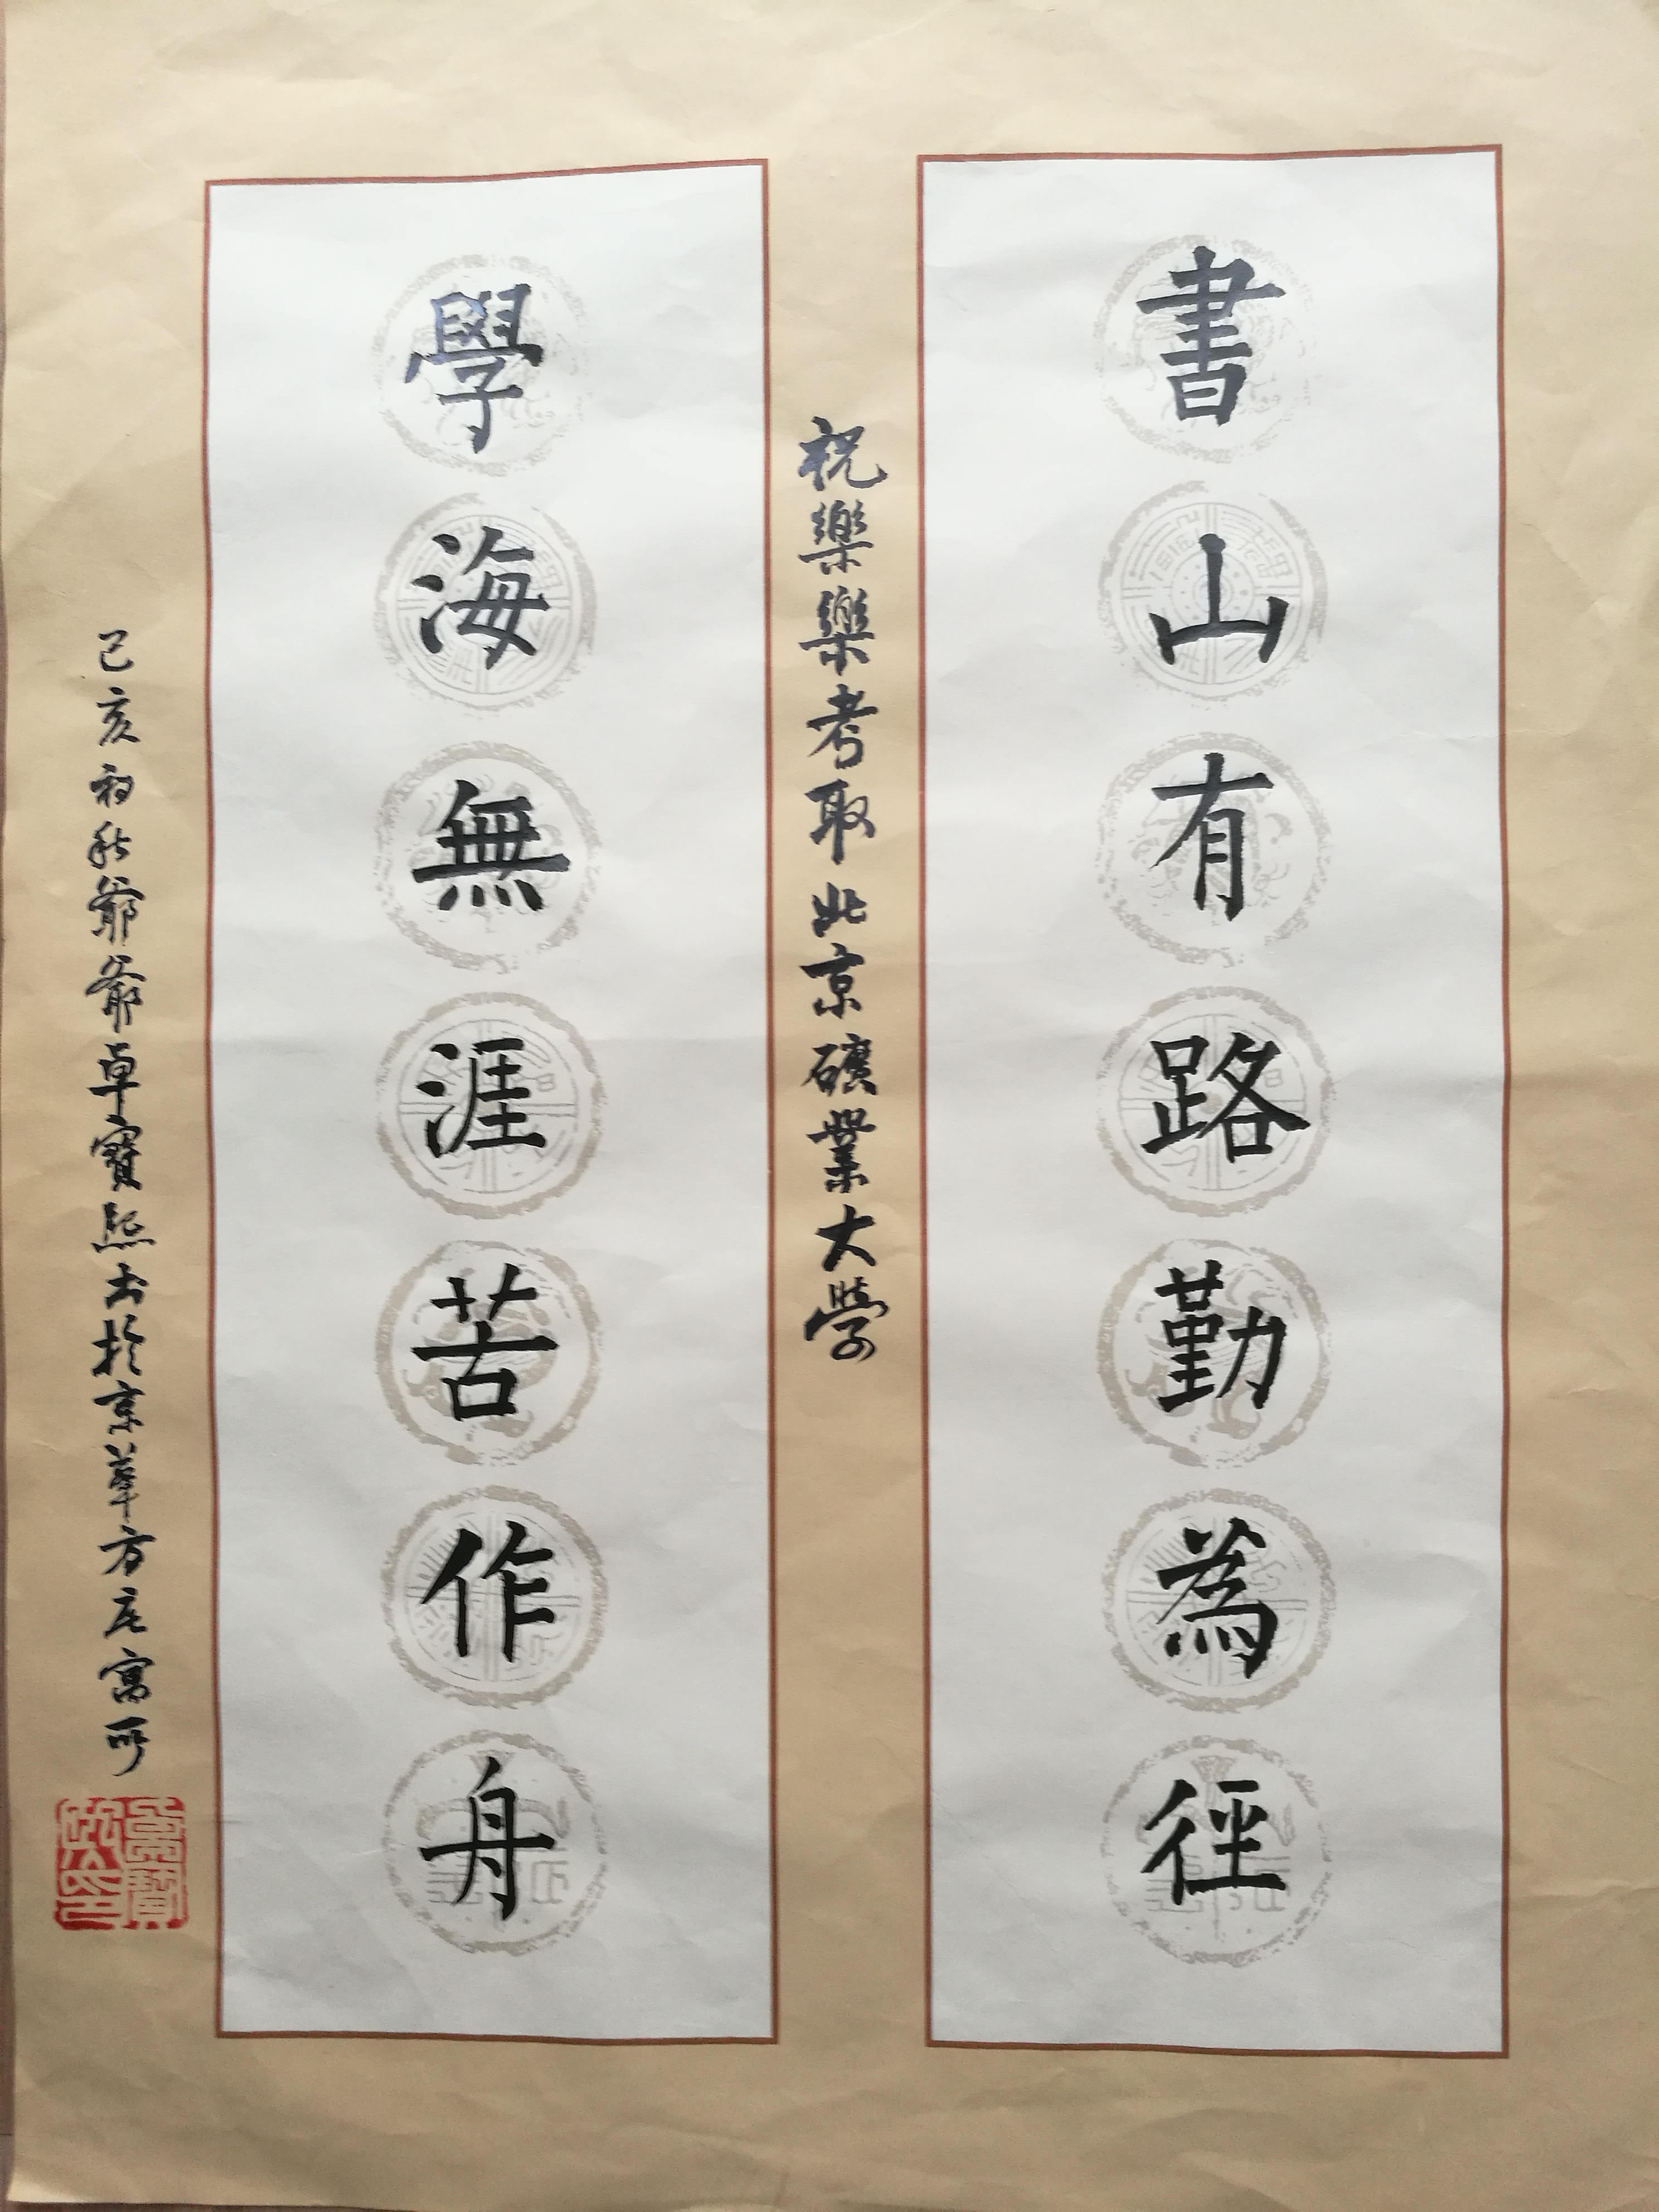 書山有路勤為徑
祝樂樂考取北京礦業大學
學海無涯苦作舟
己亥初秋爺爺卓寶熙书於京華方庄寓所